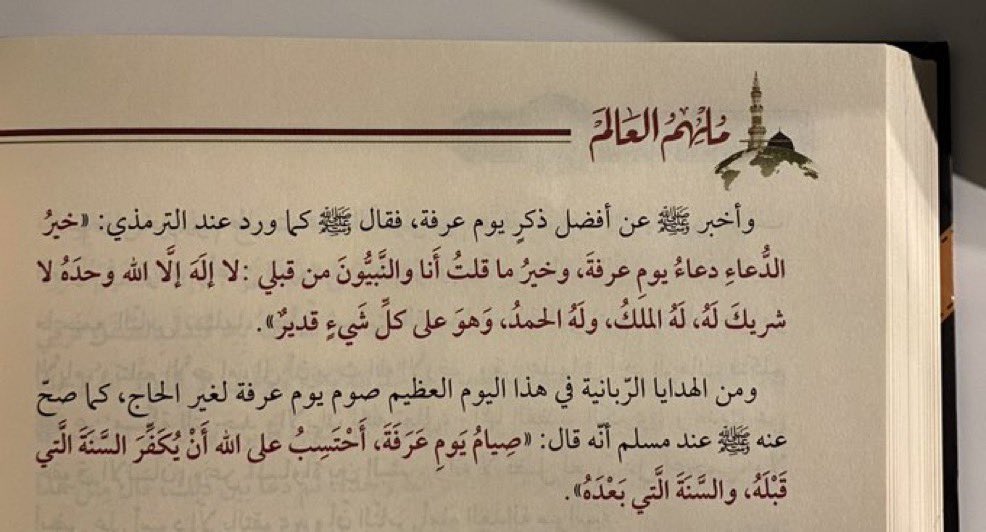 مُلْهِمُ العَالَمْ
وأخبر ﷺ عن أفضل ذكرٍ يوم عرفة، فقال ﷺ كما ورد عند الترمذي: «خيرُ
الدُّعاءِ دعاءُ يومِ عرفةَ، وخيرُ ما قلتُ أَنا والنَّبيُّونَ من قبلي :لا إلَهَ إلَّا الله وحدَهُ لا
شريكَ لَهُ، لَهُ الملكُ، ولَهُ الحمدُ، وَهوَ على كلِّ شَيءٍ قديرٌ».
ومن الهدايا الرّبانية في هذا اليوم العظيم صوم يوم عرفة لغير الحاج، كما صحّ
عنه ﷺ عند مسلم أنّه قال: «صِيامُ يَومِ عَرَفَةَ، أَحْتَسِبُ على الله أَنْ يُكَفِّرَ السَّنَةَ الَّتي
قَبْلَهُ، والسَّنَةَ الَّتي بَعْدَهُ».